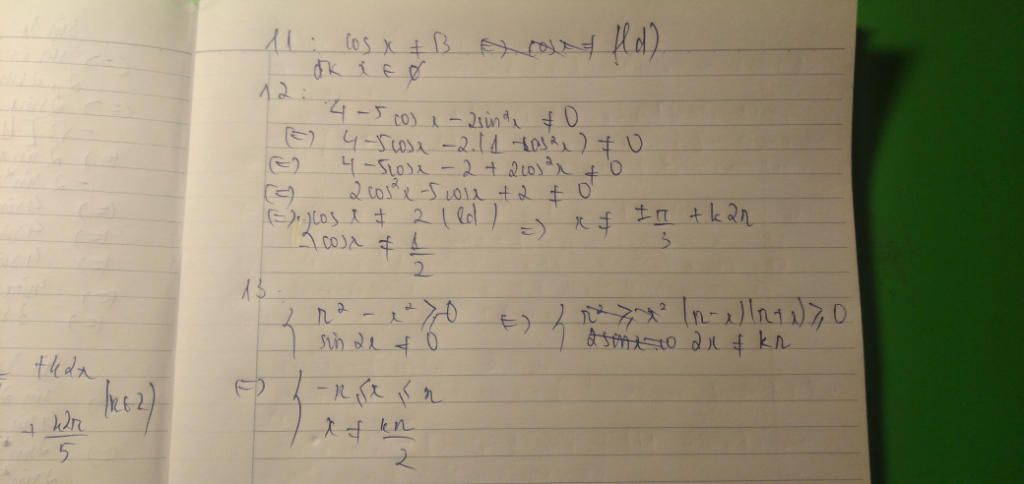 11: cos x ≠ √3 (lđ)
đk x ∈ ∅
12:
4 - 5cos x - 2sin²x ≠ 0
(=) 4 - 5cosx - 2.(1 - cos²x) ≠ 0
(=) 4 - 5cosx - 2 + 2cos²x ≠ 0
(=) 2cos²x - 5cosx + 2 ≠ 0
(=) { cos x ≠ 2 (lđ) =) x ≠ ±π/3 + k2π
cosx ≠ 1/2
13
{ π² - x² ≥ 0 (=) { (π-x)(π+x) ≥ 0
sin 2x ≠ 0 2x ≠ kπ
(=) { -π ≤ x ≤ π
x ≠ kπ/2
+k2π
(k∈Z)
+ k2π/5